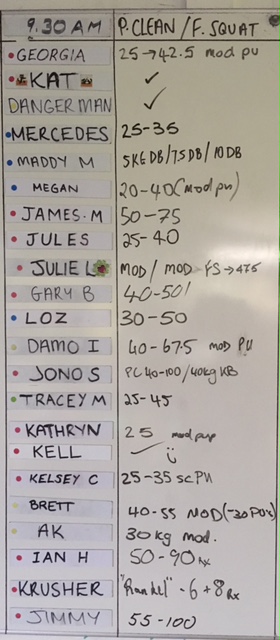 9.30 AM P.CLEAN / F.SQUAT
GEORGIA 25→42.5 mod pu
KAT ✓
DANGERMAN ✓
MERCEDES 25-35
MADDY M 5KG DB/7.5DB/10DB
MEGAN 20-40 (mod pu)
JAMES.M 50-75
JULES 25-40
JULIE L MOD / MOD FS→47.5
GARY B 40-50!
LOZ 30-50
DAMO I 40-67.5 MOD PU
JONO S PC 40-100/40kg KB
TRACEY M 25-45
KATHRYN 25 mod pup
KELL ✓
KELSEY C 25-35 sc PU
BRETT 40-55 MOD (-30 PU's)
AK 30kg mod.
IAN H 50-90 Rx
KRUSHER - 6+8 Rx
JIMMY 55-100